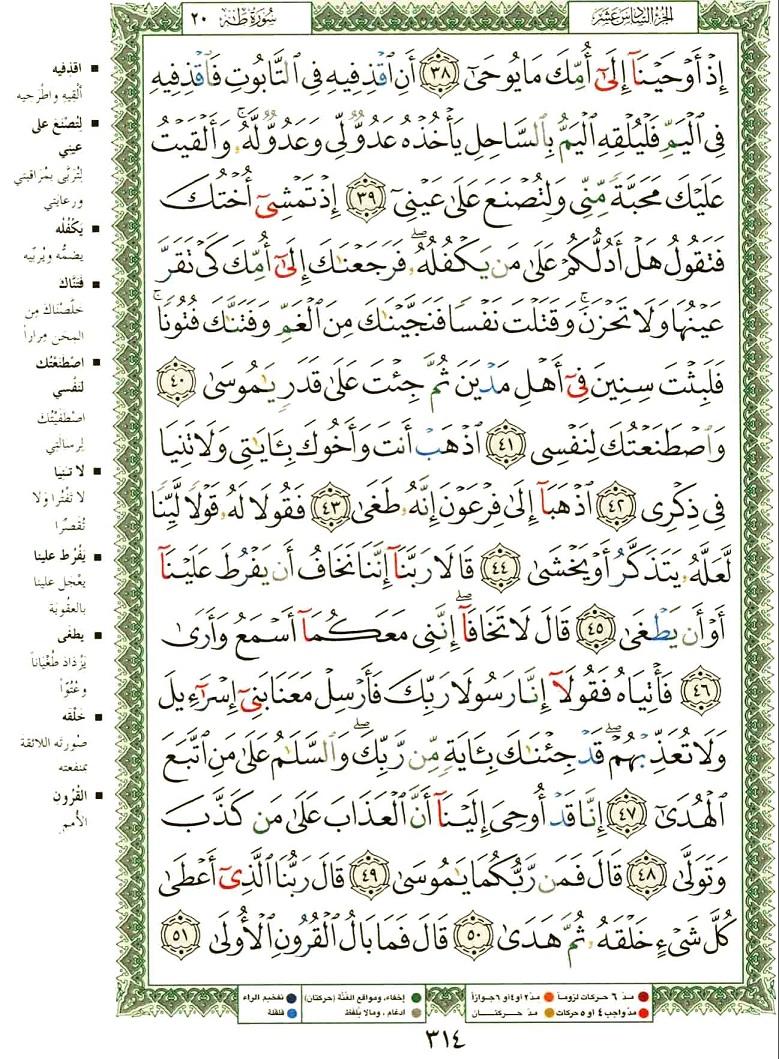 الجزء السادس عشر
سورة طه ٢٠
إِذْ أَوْحَيْنَآ إِلَىٰٓ أُمِّكَ مَا يُوحَىٰٓ ٣٨ أَنِ ٱقْذِفِيهِ فِى ٱلتَّابُوتِ فَٱقْذِفِيهِ
فِى ٱلْيَمِّ فَلْيُلْقِهِ ٱلْيَمُّ بِٱلسَّاحِلِ يَأْخُذْهُ عَدُوٌّ لِّى وَعَدُوٌّ لَّهُۥ ۚ وَأَلْقَيْتُ
عَلَيْكَ مَحَبَّةً مِّنِّى وَلِتُصْنَعَ عَلَىٰ عَيْنِىٓ ٣٩ إِذْ تَمْشِىٓ أُخْتُكَ
فَتَقُولُ هَلْ أَدُلُّكُمْ عَلَىٰ مَن يَكْفُلُهُۥ ۖ فَرَجَعْنَٰكَ إِلَىٰٓ أُمِّكَ كَىْ تَقَرَّ
عَيْنُهَا وَلَا تَحْزَنَ ۚ وَقَتَلْتَ نَفْسًا فَنَجَّيْنَٰكَ مِنَ ٱلْغَمِّ وَفَتَنَّٰكَ فُتُونًا ۚ
فَلَبِثْتَ سِنِينَ فِىٓ أَهْلِ مَدْيَنَ ثُمَّ جِئْتَ عَلَىٰ قَدَرٍ يَٰمُوسَىٰ ٤٠
وَٱصْطَنَعْتُكَ لِنَفْسِى ٤١ ٱذْهَبْ أَنتَ وَأَخُوكَ بِـَٔايَٰتِى وَلَا تَنِيَا
فِى ذِكْرِى ٤٢ ٱذْهَبَآ إِلَىٰ فِرْعَوْنَ إِنَّهُۥ طَغَىٰ ٤٣ فَقُولَا لَهُۥ قَوْلًا لَّيِّنًا
لَّعَلَّهُۥ يَتَذَكَّرُ أَوْ يَخْشَىٰ ٤٤ قَالَا رَبَّنَآ إِنَّنَا نَخَافُ أَن يَفْرُطَ عَلَيْنَآ
أَوْ أَن يَطْغَىٰ ٤٥ قَالَ لَا تَخَافَآ ۖ إِنَّنِى مَعَكُمَآ أَسْمَعُ وَأَرَىٰ
٤٦ فَأْتِيَاهُ فَقُولَآ إِنَّا رَسُولَا رَبِّكَ فَأَرْسِلْ مَعَنَا بَنِىٓ إِسْرَٰٓءِيلَ
وَلَا تُعَذِّبْهُمْ ۖ قَدْ جِئْنَٰكَ بِـَٔايَةٍ مِّن رَّبِّكَ ۖ وَٱلسَّلَٰمُ عَلَىٰ مَنِ ٱتَّبَعَ
ٱلْهُدَىٰٓ ٤٧ إِنَّا قَدْ أُوحِىَ إِلَيْنَآ أَنَّ ٱلْعَذَابَ عَلَىٰ مَن كَذَّبَ
وَتَوَلَّىٰ ٤٨ قَالَ فَمَن رَّبُّكُمَا يَٰمُوسَىٰ ٤٩ قَالَ رَبُّنَا ٱلَّذِىٓ أَعْطَىٰ
كُلَّ شَىْءٍ خَلْقَهُۥ ثُمَّ هَدَىٰ ٥٠ قَالَ فَمَا بَالُ ٱلْقُرُونِ ٱلْأُولَىٰ ٥١
■ اقذفيه
ألْقِيهِ واطْرَحيه
■ لِتُصْنَعَ على
عيني
لِتُرَبَّى بمُراقبتي
ورعايتي
■ يَكْفُلُه
يضمُّه ويُرَبِّيه
■ فَتَنَّاك
خلَّصْنَاكَ مِن
المِحَنِ مِراراً
■ اصْطَنَعْتُك
لنَفْسي
اصْطفَيْتُكَ
لرسالتي
■ لا تَنِيَا
لا تَفْتُرا وَلا
تُقَصِّرا
■ يَفْرُط علينا
يعْجَل علينا
بالعقُوبَة
■ يطغى
يَزْداد طُغْيَاناً
وعُتُوّاً
■ خَلْقه
صُورتَه اللائقة
بمنفعته
■ القُرُون
الأُمم
مدّ ٦ حركات لزوماً
مدّ ٢ أو ٤ أو ٦ جوازاً
إخفاء، ومواقع الغُنَّة (حركتان)
تفخيم الراء
مدّ واجب ٤ أو ٥ حركات
مدّ حركتان
ادغام، ومالا يُلفَظ
قلقلة
٣١٤